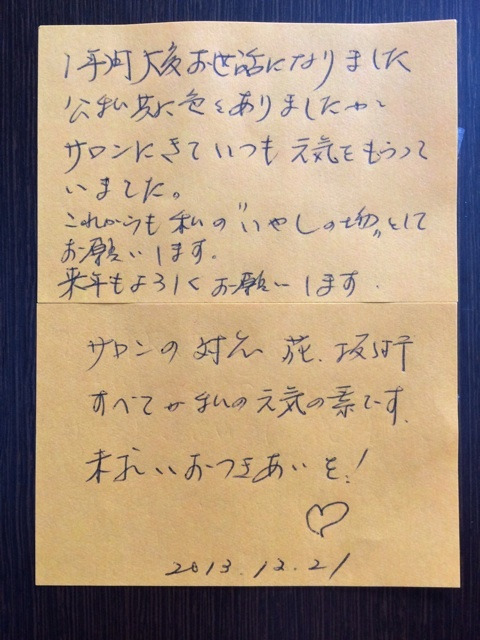 1年間大変お世話になりました
公私共に色々ありましたが
サロンにきていつも元気をもらって
いました。
これからも私の"いやしの場"として
お願いします。
来年もよろしくお願いします.
サロンの対応、花、
すべてが私の元気の素です.
末永いおつきあいを!
2013.12.21